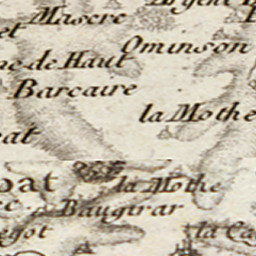 Argent
Mascre
et
Ominson
ne-de Haut
Barcaire
la Mothe
eat
oat
la Mothe
Baugirar
egot
la Ca